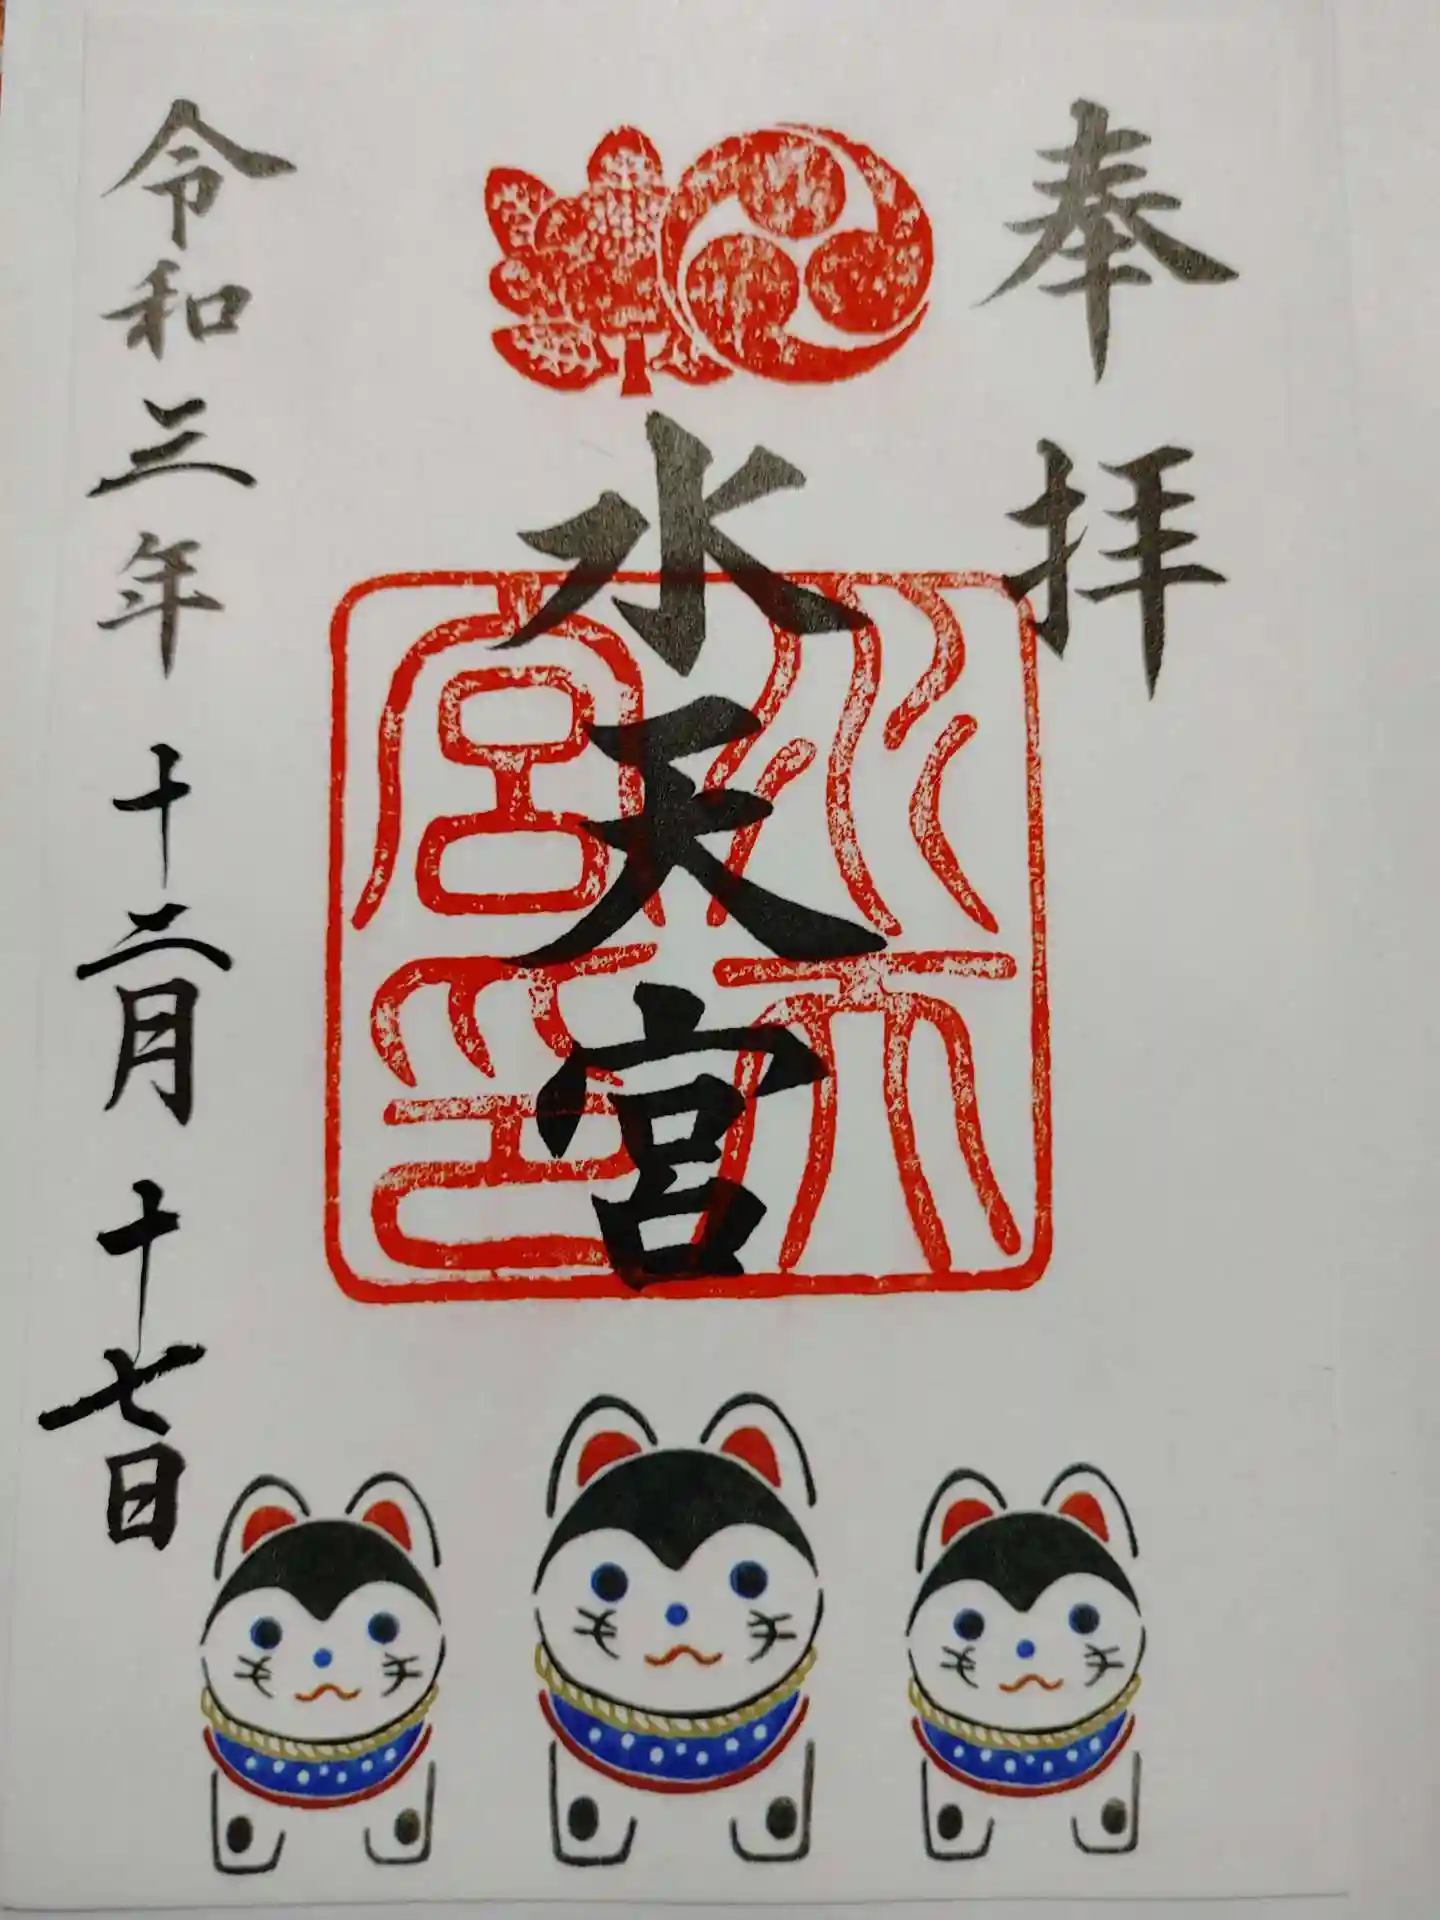 奉拝
水天宮
水天宮印
令和三年十二月十七日